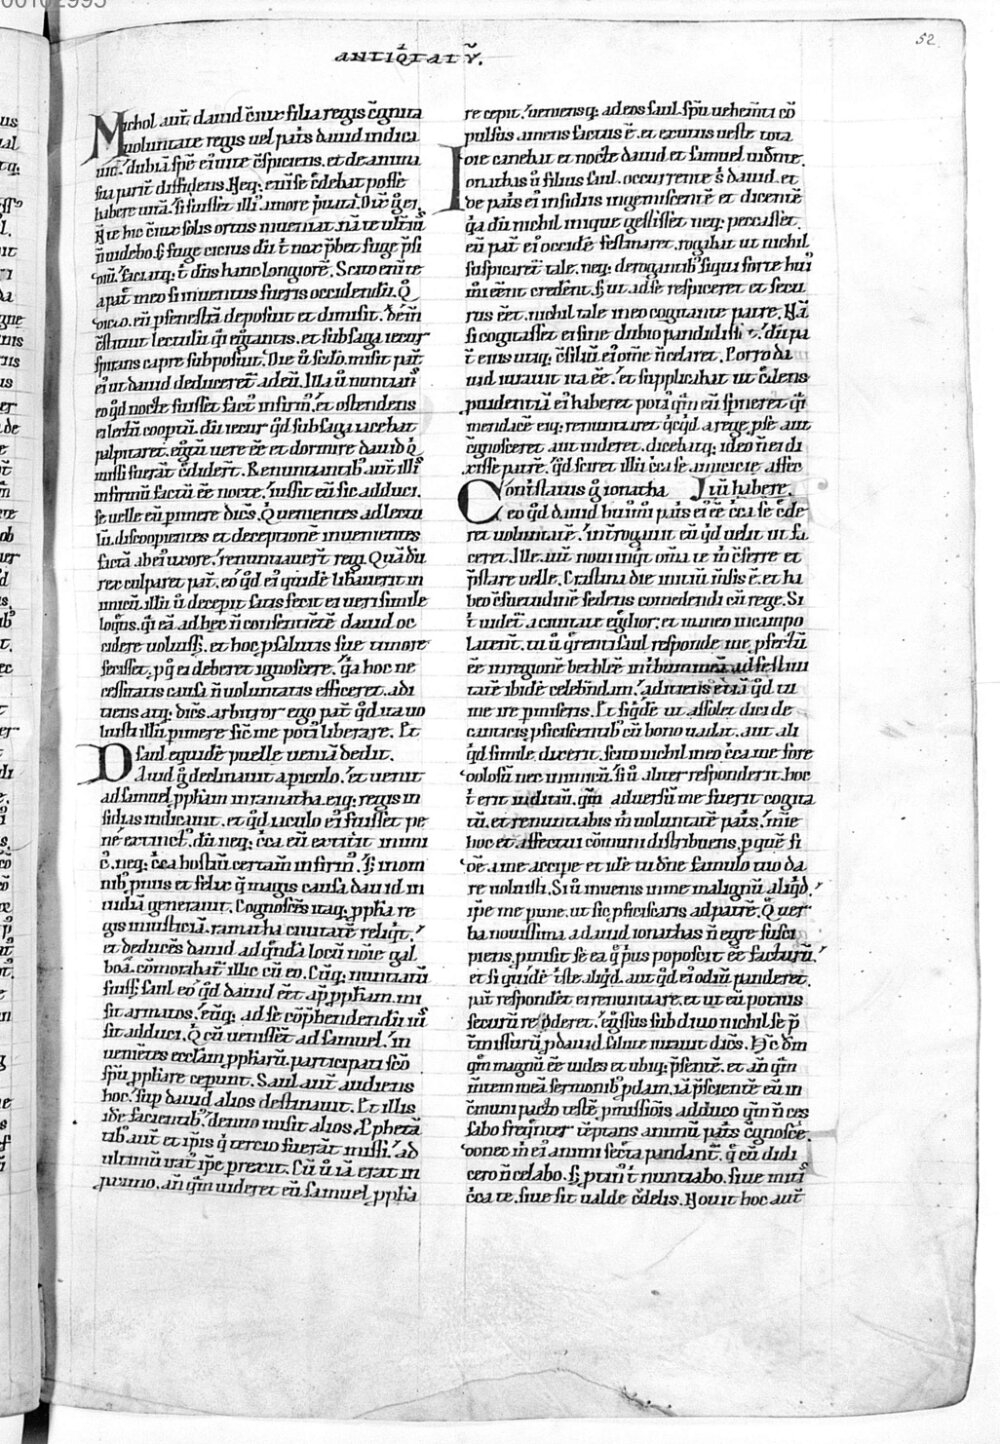 52
ANTIQ̇ITATṼ.
Michol aut̃ dauid c̃iux filia regis c̃gnita
uoluntate regis uel pat̃s dauid indica
uit. dubiã spẽ ei uite c̃spiciens. et de anima
sua parit̃ diffidens. Neq; eni se c̃debat posse
habere uitã. si fuisset illi amore p̃uata. Dix̃ g̊ ei.
Ne hic c̃iux solis ortus inueniat. nã te ultiũ
ñ uidebo. s; fuge cicius dũ t̃ nox p̃bet fuge p̃si
diũ. faciatq; t̃ dñs hanc longiorẽ. Scito eni te
a pat̃ meo si inuentus fueris occidendũ. Q̊
dicto. eũ p fenestrã deposuit et dimisit. Dein
c̃stituit lectulũ q̃i egrantis. et sub saga iecur
spirans capre supposuit. Die ů sc̃do. misit pat̃
ei ut dauid deduceret̃ ad eũ. Illa ů nuntiañ
eo q̊d nocte fuisset fact̉ infirm̉. et ostendens
ei lectũ cooptũ. dũ iecur q̊d sub saga iacebat
palpitaret. egrũ uere eẽ et dormire dauid q̊
missi fuerãt c̃didert̃. Renuntiantib; aut̃ illis
infirmũ factũ eẽ nocte. iussit eũ sic adduci.
se uelle eũ pimere dic̃s. Q̇ uenientes ad lectu
lũ. discooptientes et deceptionẽ inuenientes
factã ab ei uxore. renuntiauert̃ regi. Quã dũ
rex culparet pat̃. eo q̊d ei quidẽ libauerit in
imicũ. illũ ů decepit satis fecit ei uerisimile
loq̃ns. q̃i eã ad hec ñ consentiẽtẽ dauid oc
cidere uoluiss;. et hoc p salutis sue timore
fecisset. p q̊ ei deberet ignoscere. q̃a hoc ne
cessitatis causa ñ uoluntatis efficeret. adi
ciens atq; dic̃s. arbitror ego pat̃ q̊d ita uo
luisti illũ pimere sic̃ me potĩ liberare. Et
saul equidẽ puelle ueniã dedit.
Dauid g̊ declinauit a piculo. et uenit
ad samuel pphãm in ramatha. eiq; regis in
sidias indicauit. et q̊d iaculo ei fuisset pe
nẽ extinct̉. dũ neq; c̃ca eũ extitit inimi
c̉. neq; c̃ca hostiũ certam̃ infirm̉. s; in om
nib; p̃uus et felix. q̊ magis causa dauid in
uidiã generauit. Cognosc̃es itaq; pphã re
gis iniusticiã. ramatha ciuitatẽ reliq̇t.
et deducẽs dauid ad q̃ndã locũ noĩe gal
boã. cõmorabat̃ illic cũ eo. Cũq; nuntiatũ
fuiss; saul eo q̊d dauid eẽt ap̃ pphãm. mi
sit armatos. eũq; ad se cõp̃hendendũ ius
sit adduci. Q̇ cũ ueniss̃et ad samuel. in
ueniẽtes eccl̃am pphãrũ. participati sc̃o
sp̃u pphãre ceperunt. Saul aut̃ audiens
hoc. sup̃ dauid alios destinauit. Et illis
idẽ facientib;. denuo misit alios. Ppheta
tib; aut̃ et ip̃is q̇ tercio fuerãt missi. ad
ultimũ irat̉ ip̃e prexit. Cũ ů iã erat in
pximo. añ q̃m uideret eũ samuel pphã
re cepit. Veniensq; ad eos saul. sp̃u uehem̃ti cõ
pulsus amens factus ẽ. et exutus ueste tota
die canebat et nocte dauid et samuel uidẽte.
Ionathas ů filius saul. occurrente s̉ dauid. et
de pat̃s ei insidiis ingemiscentẽ et dicentẽ
q̃a dũ nichil inique gessisset neq; peccasset.
eũ pat̃ ei occidẽ festinaret. rogabat ut nichil
suspicaret̃ tale. neq; derogantib; si qui forte hui
im̃i eẽnt credẽnt. s; ut ad se respiceret et secu
rus eẽt. nichil tale meo cogitante patre. Nã
si cogitasset et sine dubio pandidisse. dũ pa
t̃ eius utiq; c̃siliũ ei om̃e ñ celaret. Porro da
uid iurauit ita eẽ. et supplicabat ut c̃dens
puidentiã ei haberet poti q̃m eũ spneret q̃i
mendacẽ. eiq; renuntiaret q̇cq̇d a rege p̃se aut
c̃gnosceret aut uideret. dicebatq; ideo ñ ei di
xisse patrẽ. q̊d sciret illũ c̃ca se amicicie affec
Contristatus g̊ ionatha tũ habere.
eo q̊d dauid hui im̃i pat̃s ei eẽ c̃ca se c̃de
ret uoluntatẽ. introgauit eũ q̊d uelit ut fa
ceret. Ille aut̃ noui inq̇t om̃a te m̃ c̃ferre et
p̃stare uelle. Crastina die initiũ m̃sis ẽ. et ha
beo c̃suetudinẽ sedens comedendi cũ rege. Si
t̃ uidet̃ a ciuitate eg̃dior. et maneo in campo
latent̃. tu ů q̊renti saul responde. me pfectũ
eẽ in regionẽ bethleẽ
tatẽ ibidẽ celebrandam. adiciens etiã q̊d tu
me ire pmiseris. Et siq̇dẽ ut assolet dici de
canticis pficiscentib; cũ bono uadit. aut ali
q̊d simile dixerit. scito nichil meo c̃ca me fore
dolosũ nec inimicũ. Si ů aliter responderit. hoc
t̃ erit inditiũ. q̃m aduersũ me fuerit cogita
tũ. et renuntiabis m̃ uoluntatẽ pat̃s. m̃ie
hoc et affectui cõmuni distribuens. p quẽ fi
dẽ a me accipe et ide tu dñe famulo tuo da
re uoluisti. Si ů inuenis in me malignũ aliq̊d.
ip̃e me pune. ut sic pficiscaris ad patrẽ. Q̊ uer
ba nouissima a dauid ionathas ñ egre susci
piens. pmisit se ea q̊ p̃us poposcit eẽ facturũ.
et si quidẽ tiste aliq̊d. aut q̊d ei odiũ panderet.
pat̃ respondet̃ ei renuntiare. et ut eũ potius
securũ redderet. eg̃ssus sub diuo nichil se p̃
t̃missurũ p dauid salute iurauit dic̃s. Hc̃ dm̃
q̃m magnũ eẽ uides et ubiq; p̃sentẽ. et añ q̃m
m̃tem meã sermonib; pdam. iã p̃scientẽ eũ in
c̃muni pacto testẽ pmissiois adduco. q̃m ñ ces
sabo freq̃nter tẽptans animũ pat̃s c̃gnosce̊.
donec m̃ ei animi sec̃ta pandant̃. q̊ cũ didi
cero ñ celabo. s; ptin̉ t̃ nuntiabo. siue mitis
c̃ca te. siue sit ualde c̃delis. Nouit hoc aut̃